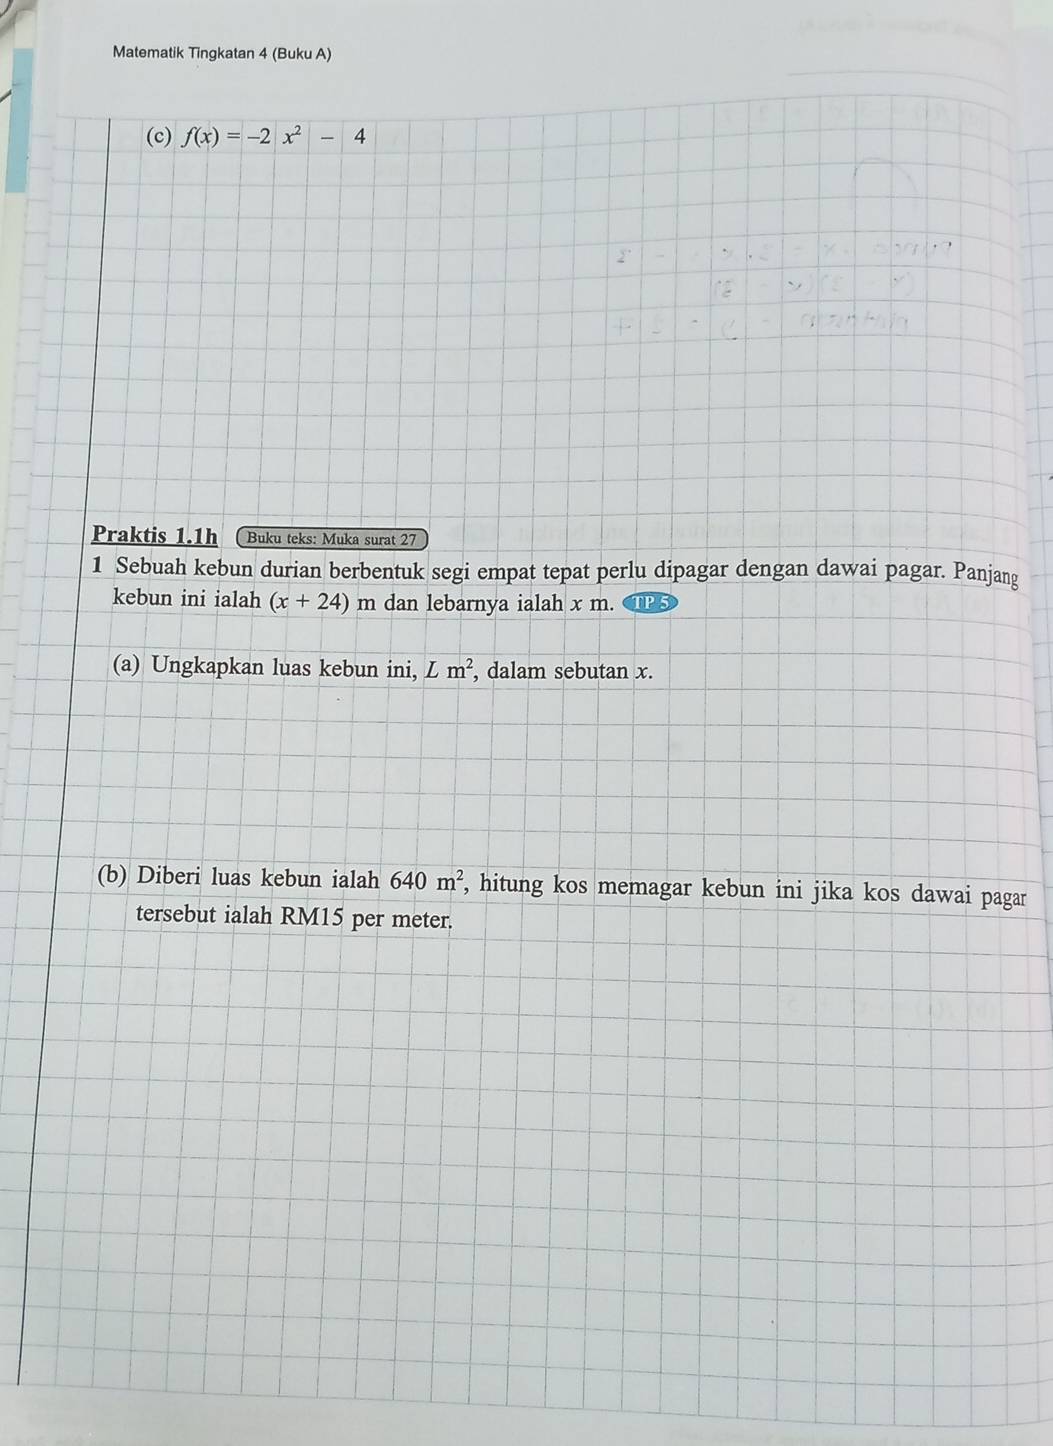 Matematik Tingkatan 4 (Buku A)
(c) f(x) = –2 x² – 4
Praktis 1.1h Buku teks: Muka surat 27
1 Sebuah kebun durian berbentuk segi empat tepat perlu dipagar dengan dawai pagar. Panjang
kebun ini ialah (x + 24) m dan lebarnya ialah x m. TP 5
(a) Ungkapkan luas kebun ini, L m², dalam sebutan x.
(b) Diberi luas kebun ialah 640 m², hitung kos memagar kebun ini jika kos dawai pagar
tersebut ialah RM15 per meter.